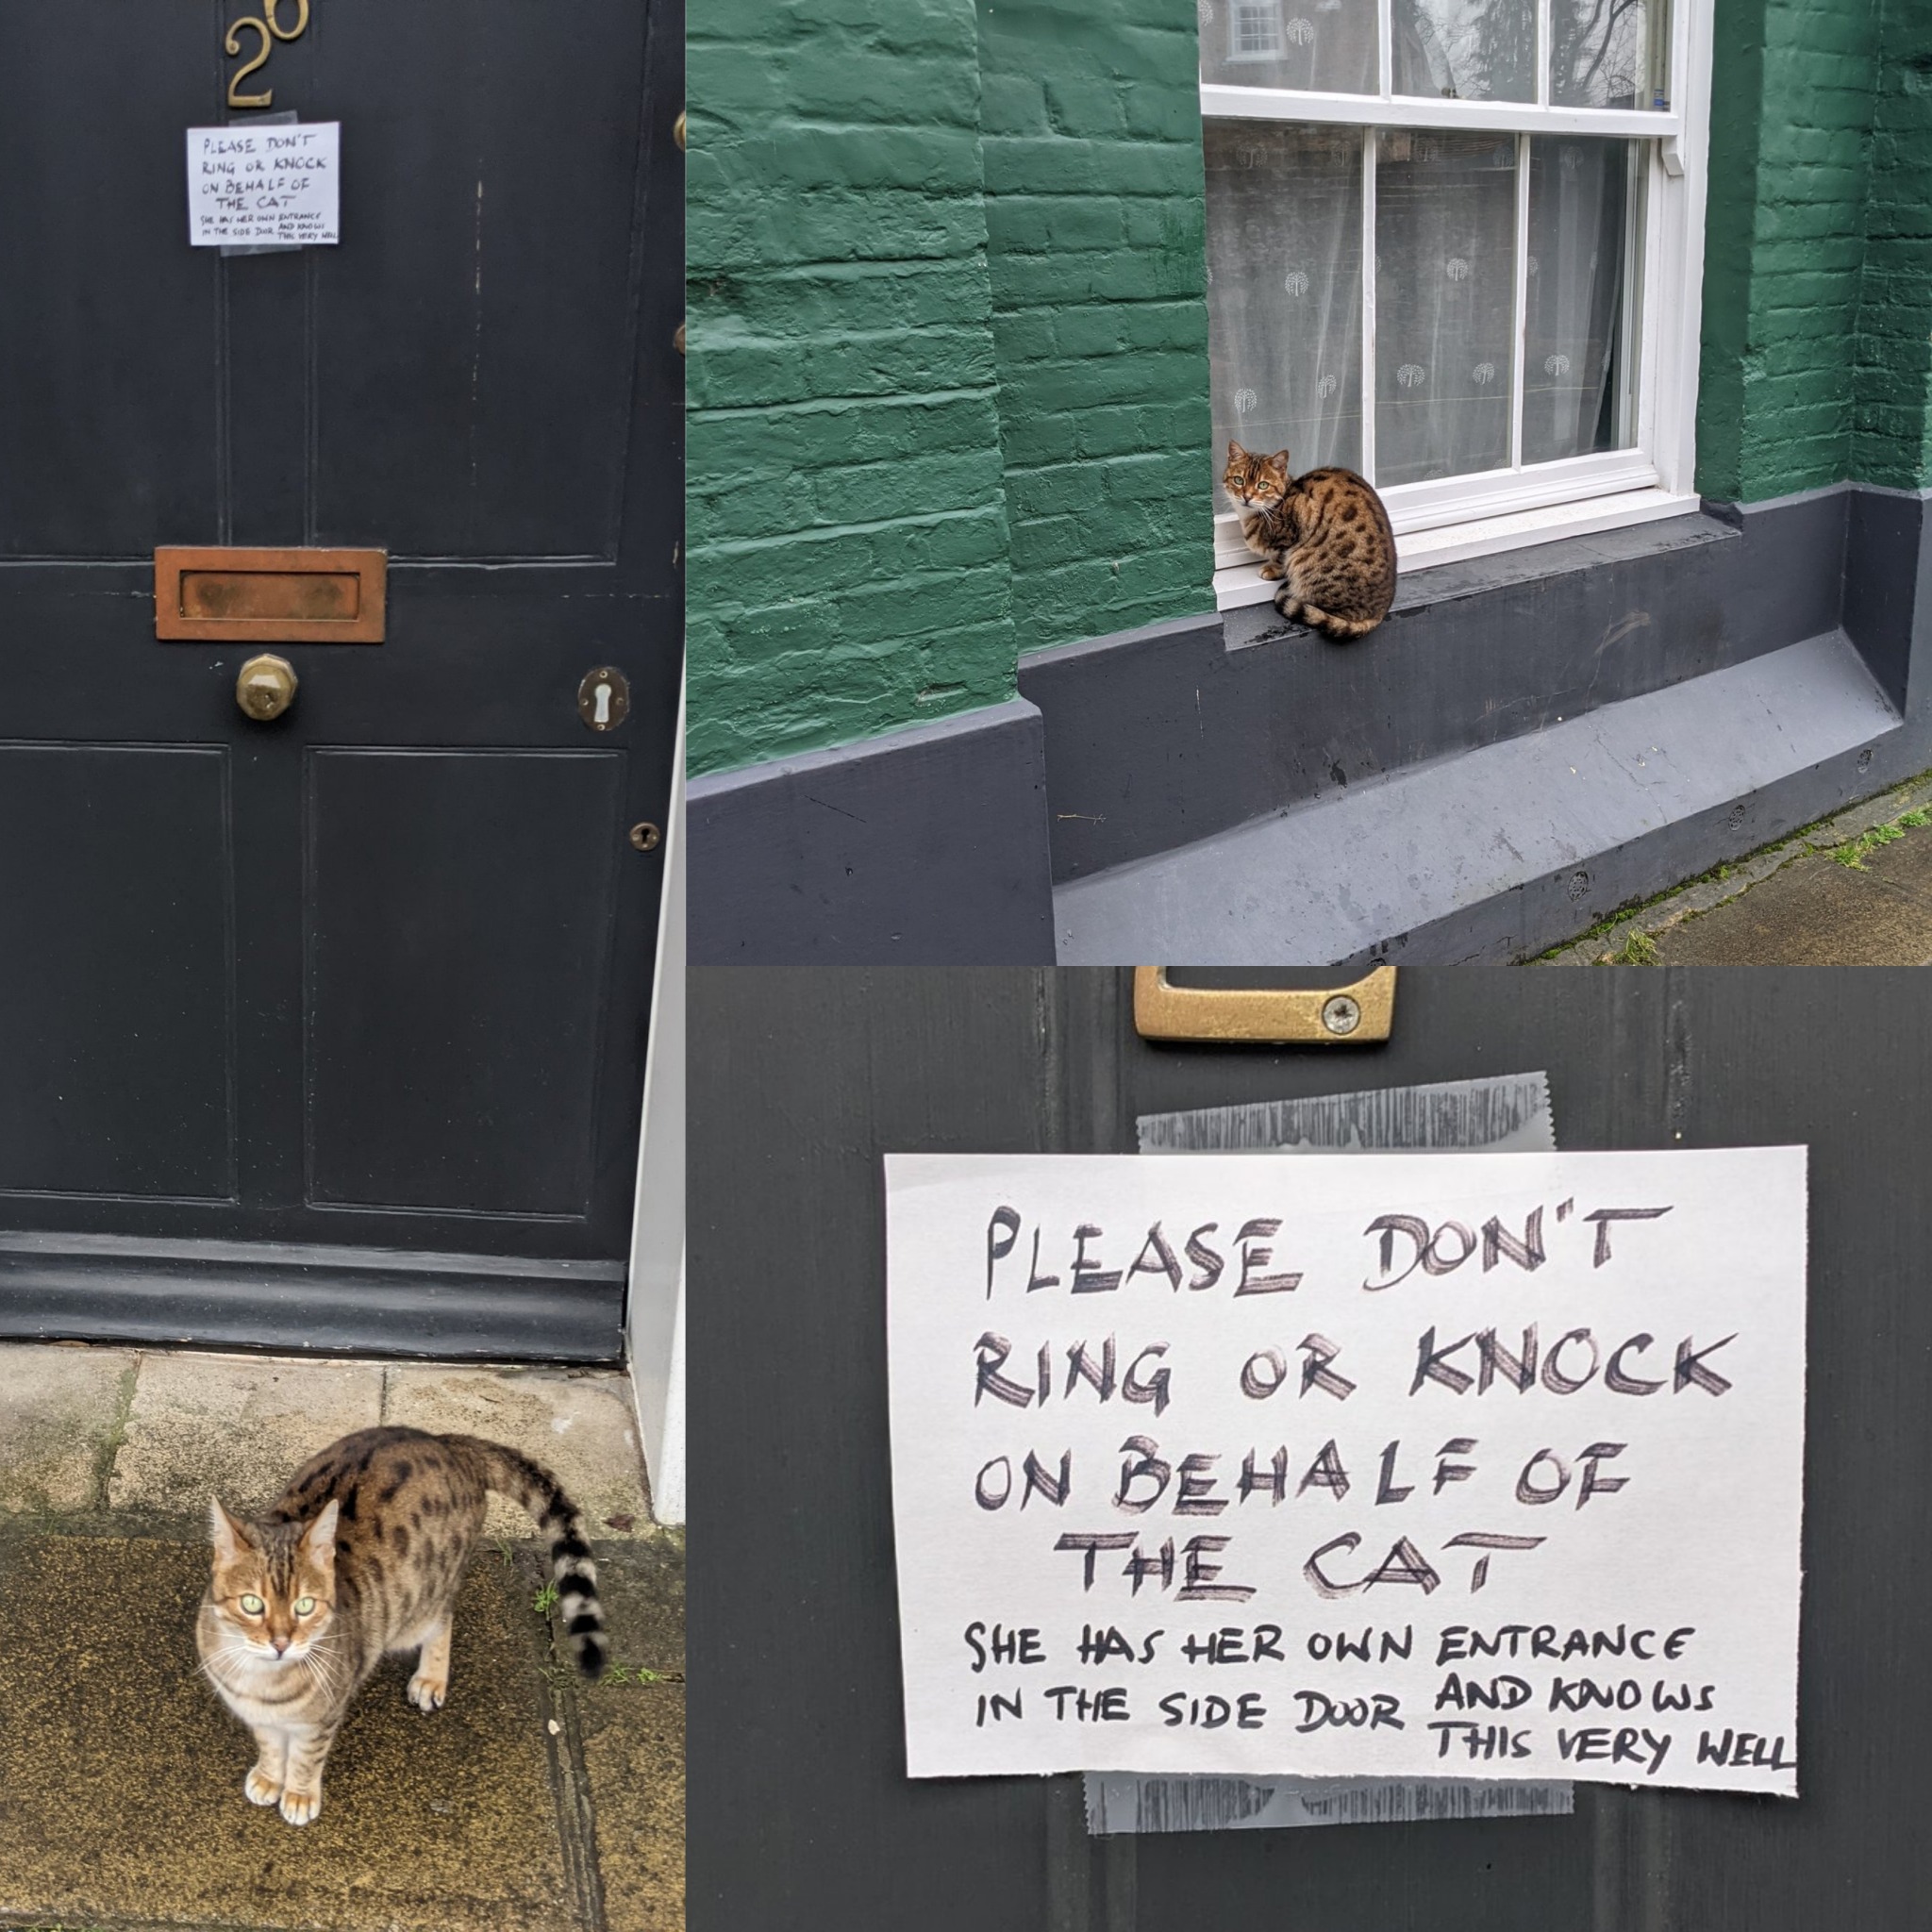 26
PLEASE DON'T
RING OR KNOCK
ON BEHALF OF
THE CAT
SHE HAS HER OWN ENTRANCE
IN THE SIDE DOOR AND KNOWS
THIS VERY WELL
PLEASE DON'T
RING OR KNOCK
ON BEHALF OF
THE CAT
SHE HAS HER OWN ENTRANCE
IN THE SIDE DOOR AND KNOWS
THIS VERY WELL